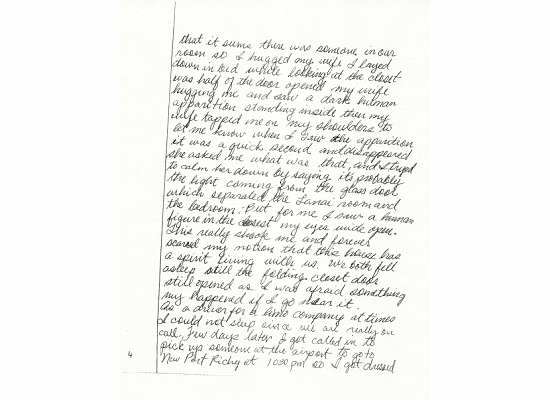 that it sums there was someone in our
room so I hugged my wife I layed
down in bid while looking at the closet
was half of the door opened my wife
hugging me and saw a dark human
apparition standing inside then my
wife tapped me on my shoulders to
let me know when I saw the apparition
it was a quick second and disappeared
she asked me what was that, and I tryed
to calm her down by saying its probably
the light coming from the glass door
which separated the Lanai room and
the bedroom. But for me I saw a human
figure in the closest my eyes wide open.
This really shook me and forever
scared my notion that this house has
a spirit living with us. We both fell
asleep still the folding closet door
still opened as I was afraid something
my happened if I go near it
As a driver for a limo company at times
I could not sleep since we are really on
call. Few days later I got called in to
pick up someone at the airport to go to
4 New Port Richy at 1030 pm so I got dressed